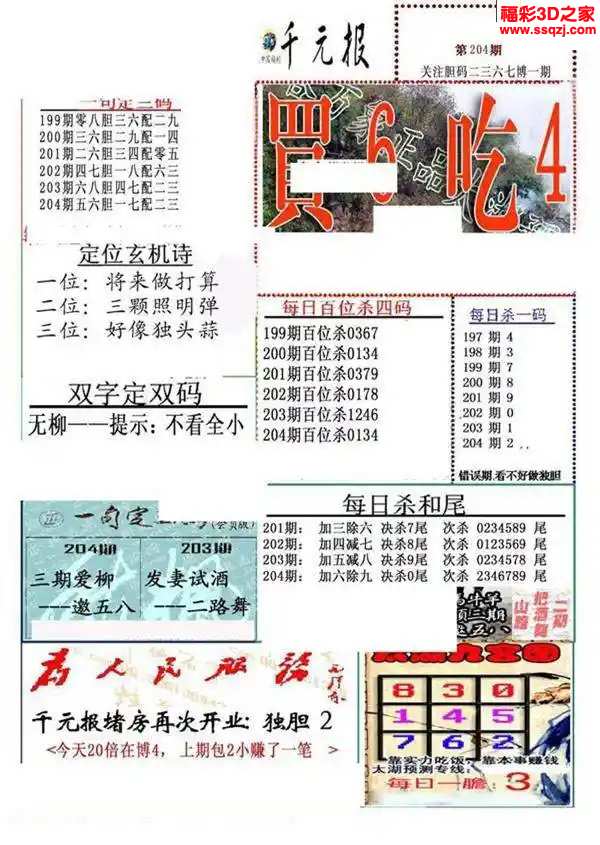 福彩3D之家
www.ssqzj.com
千元报
第204期
关注胆码二三六七博一期
一句定三码
199期零八胆三六配二九
200期三六胆二九配一四
201期二六胆三四配零五
202期四七胆一八配六三
203期六八胆四七配二三
204期五六胆一七配二三
買6吃4
定位玄机诗
一位：将来做打算
二位：三颗照明弹
三位：好像独头蒜
每日百位杀四码
199期百位杀0367
200期百位杀0134
201期百位杀0379
202期百位杀0178
203期百位杀1246
204期百位杀0134
每日杀一码
197 期 4
198 期 3
199 期 7
200 期 8
201 期 9
202 期 0
203 期 1
204 期 2
错误期.看不好做独胆
双字定双码
无柳——提示：不看全小
每日杀和尾
201期： 加三除六 决杀7尾 次杀 0234589 尾
202期： 加四减七 决杀8尾 次杀 0123569 尾
203期： 加五减八 决杀9尾 次杀 0234578 尾
204期： 加六除九 决杀0尾 次杀 2346789 尾
一句定
(会员版)
204期
三期爱柳
---邀五八
203期
发妻试酒
---二路舞
为人民服务
千元报堵房再次开业：独胆 2
<今天20倍在博4，上期包2小赚了一笔 >
8 3 0
1 4 5
7 6 2
靠实力吃饭，靠本事赚钱
太湖预测专线：
每日一胆：3